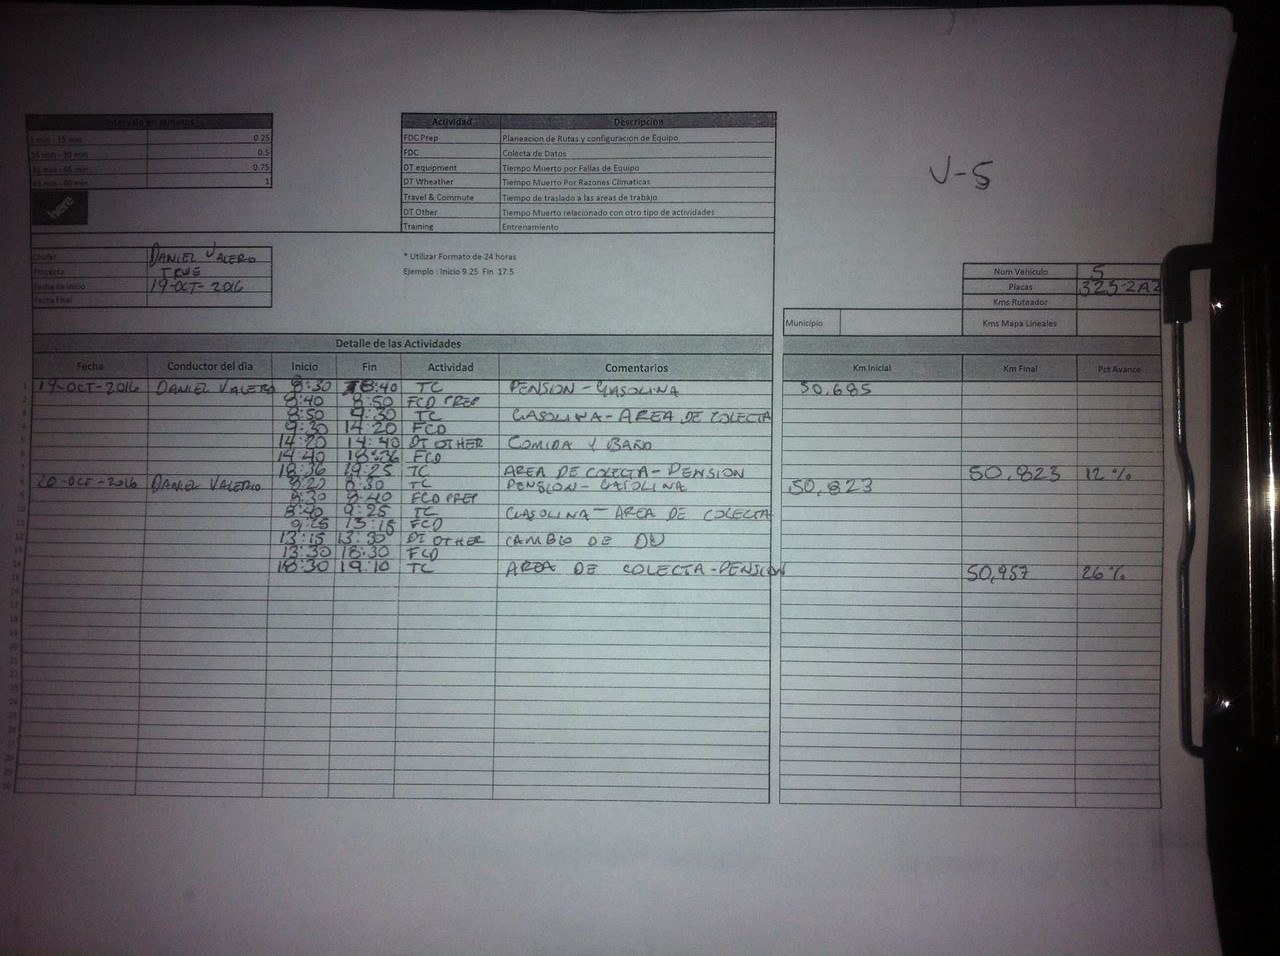 Intervalo en minutos
1 min - 15 min 0.25
16 min - 30 min 0.5
31 min - 45 min 0.75
46 min - 60 min 1
here
Actividad Descripcion
FDC Prep Planeacion de Rutas y configuracion de Equipo
FDC Colecta de Datos
DT equipment Tiempo Muerto por Fallas de Equipo
DT Wheather Tiempo Muerto Por Razones Climaticas
Travel & Commute Tiempo de traslado a las areas de trabajo
DT Other Tiempo Muerto relacionado con otro tipo de actividades
Training Entrenamiento
V-5
Chofer DANIEL VALERO
Proyecto TRUE
Fecha de Inicio 19-OCT-2016
Fecha Final
* Utilizar Formato de 24 horas
Ejemplo : Inicio 9.25 Fin 17.5
Num Vehículo 5
Placas
Kms Ruteador
Municipio Kms Mapa Lineales
Detalle de las Actividades
Fecha Conductor del dia Inicio Fin Actividad Comentarios Km Inicial Km Final Pct Avance
19-OCT-2016 DANIEL VALERO 8:30 8:40 TC PENSION-GASOLINA 50,685
8:40 8:50 FCD PREP
8:50 9:30 TC GASOLINA-AREA DE COLECTA
9:30 14:20 FCD
14:20 14:40 DT OTHER COMIDA Y BAÑO
14:40 18:36 FCD
18:36 19:25 TC AREA DE COLECTA-PENSION 50,823 12%
20-OCT-2016 DANIEL VALERIO 8:20 8:30 TC PENSION-GASOLINA 50,823
8:30 8:40 FCD PREP
8:40 9:25 TC GASOLINA-AREA DE COLECTA
9:25 13:15 FCD
13:15 13:30 DT OTHER CAMBIO DE DU
13:30 18:30 FCD
18:30 19:10 TC AREA DE COLECTA-PENSION 50,957 26%